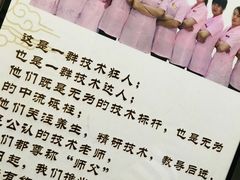 这是一群技术狂人；
也是一群技术达人；
他们既是无为的技术标杆，也是无为
的中流砥柱；
他们关注养生，精研技术，教导后进，
公认的技术老师，
们都尊称“师父”